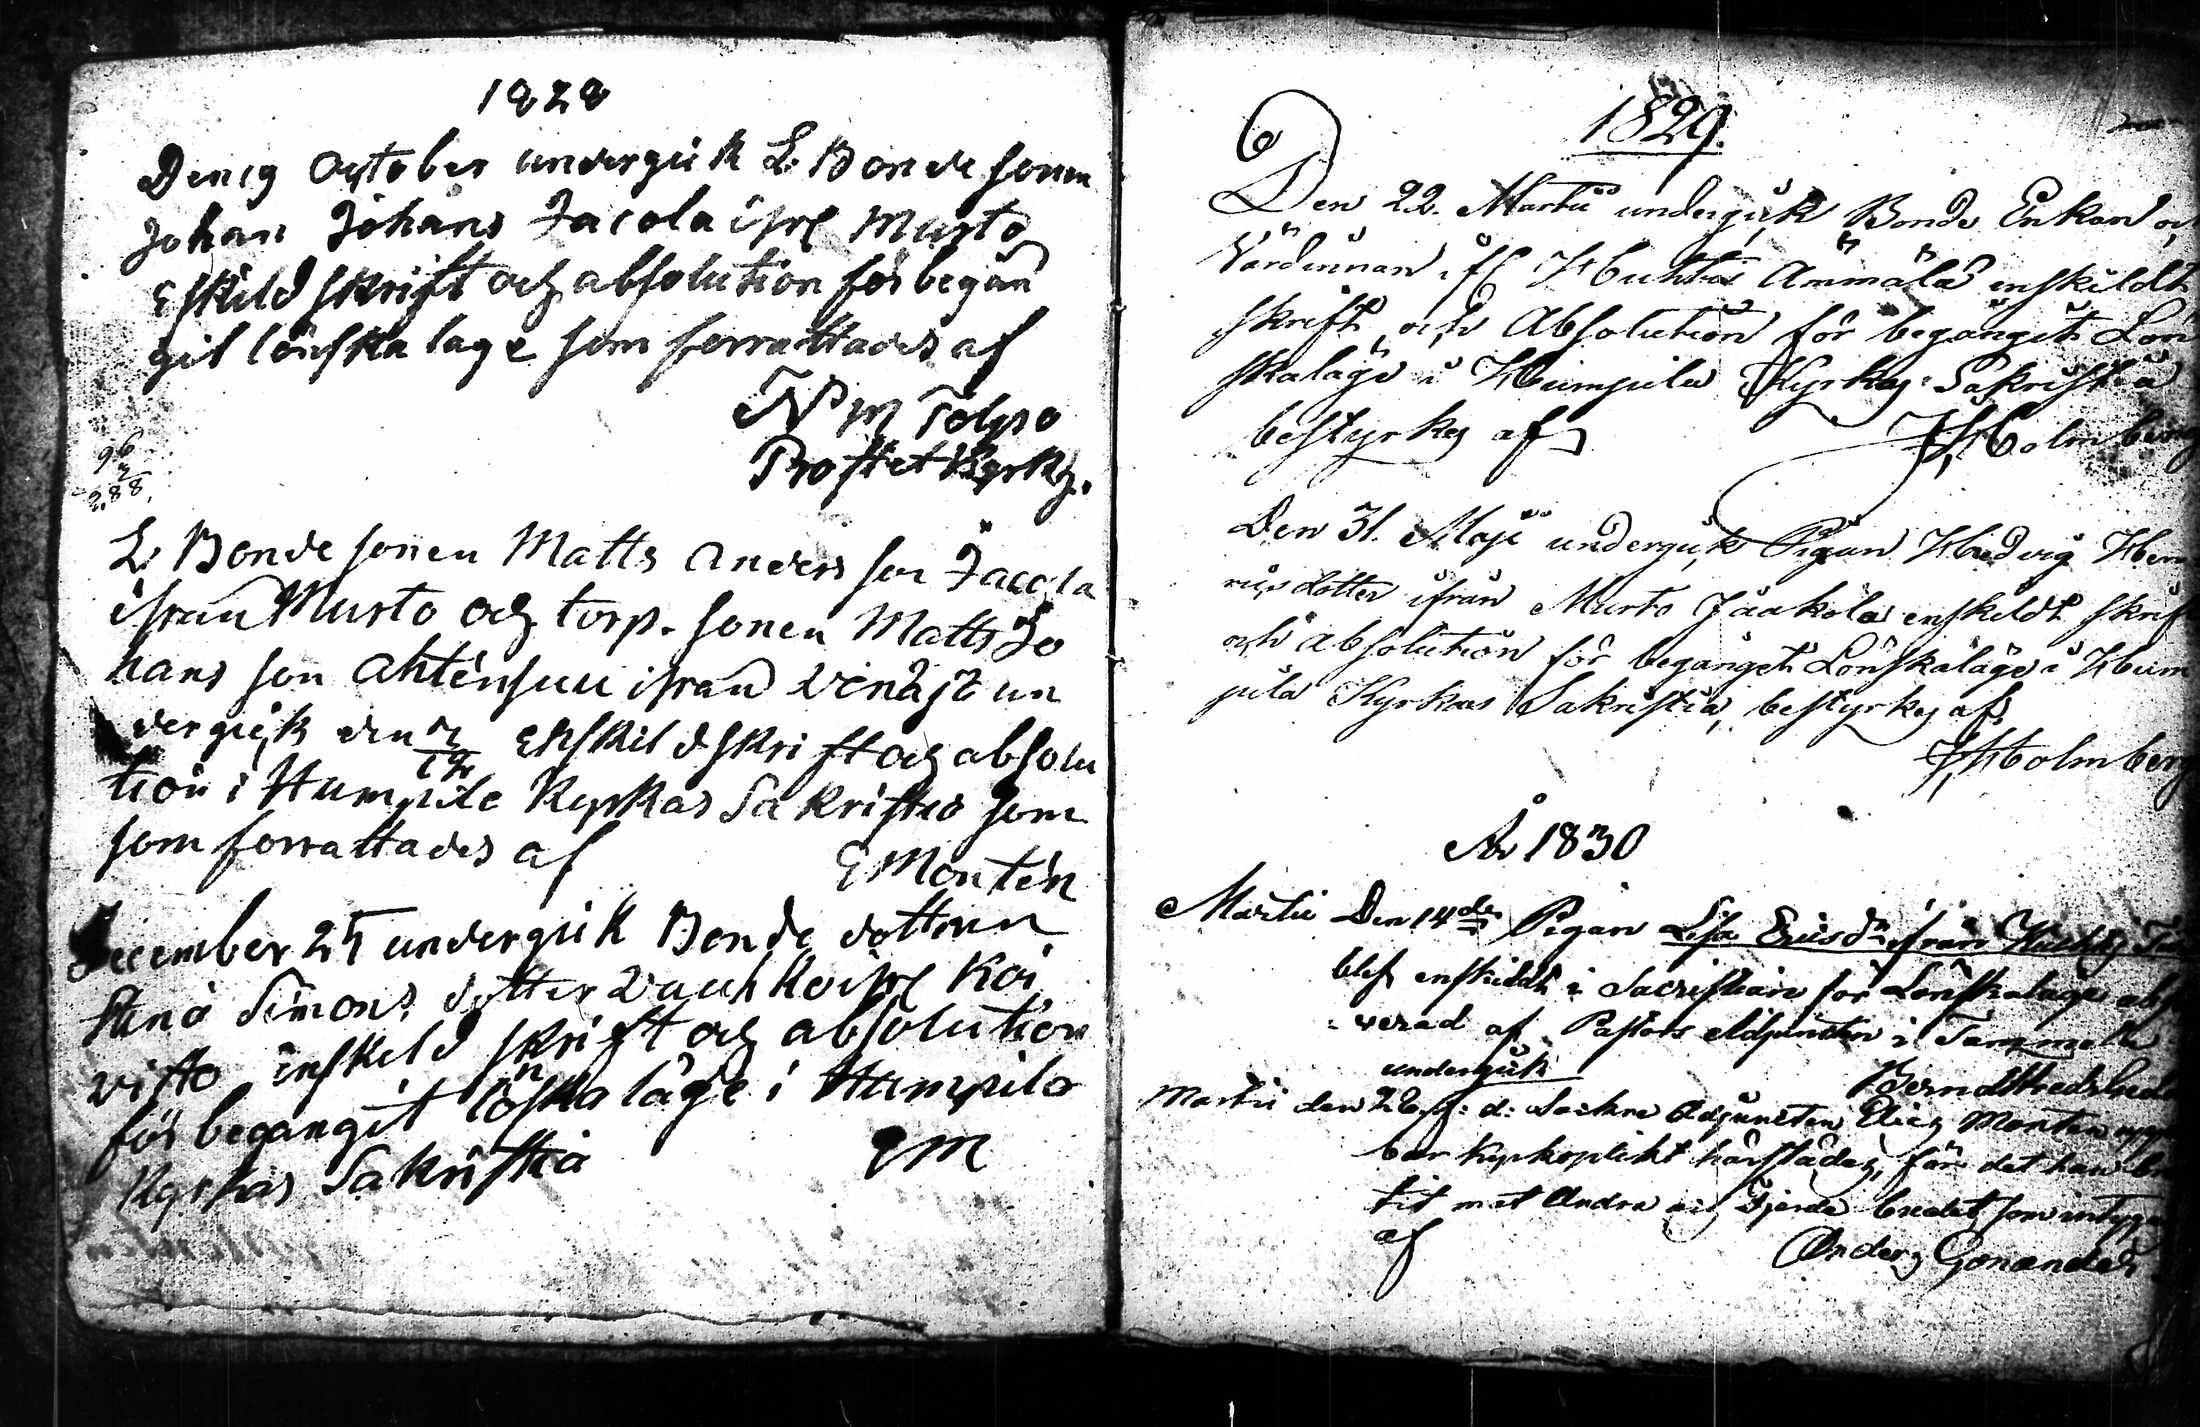 1828
Den 19 October undergik L. Bonde sonen
Johan Johans Jacola ifrå Murto
Eskild skrift och absolution för begån
git lönska lage som forrattades af
N M Tolpo
Prost et Kyrkh.
96
3
288.
L. Bonde sonen Matts Anders son Jacola
ifran Murto och torp. sonen Matts Jo
hans son Ahtensuu ifran Venäjä un
dergick den 7/12 Enskild skrift och absolu
tion i Humpila Kyrkas Sakristia som
som forrattades af
E Montén
December 25 undergik Bonde dottren
Stina Simons dotter Vauhko ifrå Koi
visto enskild skrift och absolution
för begangit lönska läge i Humpila
Kyrkas Sakristia
E M
1829.
Den 22. Martii undergick Bonde Enkan och
Värdinnan ifr Huhtas Ammälä enskildt
skrift, och Absolution för begånget Lön
skaläge i Humpila Kyrkas Sakristia
bestyrkes af
Holmberg
Den 31. Maji undergick Pigan Hedvig Hen
rics dotter ifrån Murto Jaakola enskildt skrift
och absolution för begånget Lönskaläge i Hum
pila Kyrkas Sakristia, bestyrkes af
Holmberg
År 1830
Martii Den 14de Pigan Lisa Ericsdr ifrån
blef enskildt i Sacristian för Lönskaläge
verad af Pastors Adjuncten i Tammela
undergick
Martii den 28 Adjuncten Eric Monten
bar Kyrkoplikt härstädes, för det han
tit mot Andra och Fjerde budet, som intyga
af
Anders Gonander